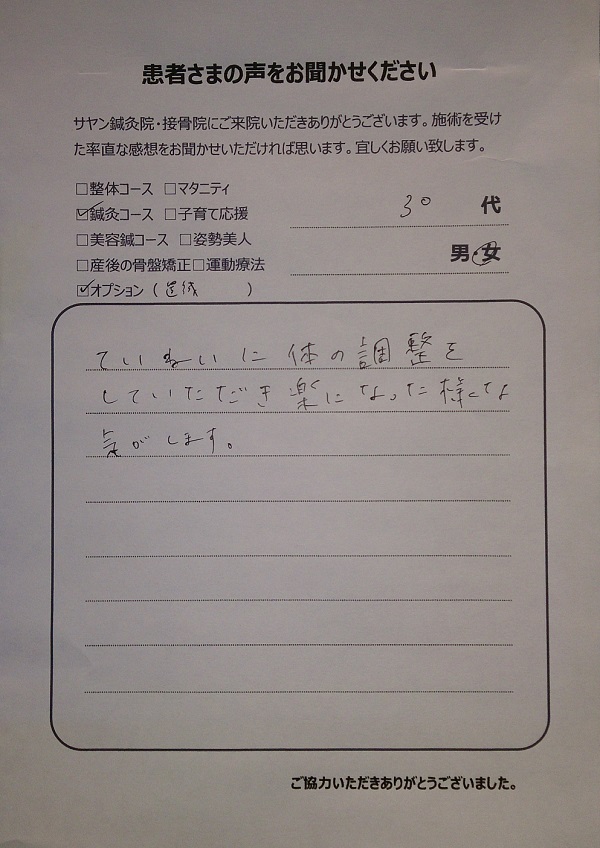 患者さまの声をお聞かせください
サヤン鍼灸院・接骨院にご来院いただきありがとうございます。施術を受け
た率直な感想をお聞かせいただければ思います。宜しくお願い致します。
□整体コース □マタニティ
☑鍼灸コース □子育て応援
□美容鍼コース □姿勢美人
□産後の骨盤矯正□運動療法
☑オプション ( )
30 代
男・女
ていねいに体の調整を
していただき楽になった様な
気がします。
ご協力いただきありがとうございました。